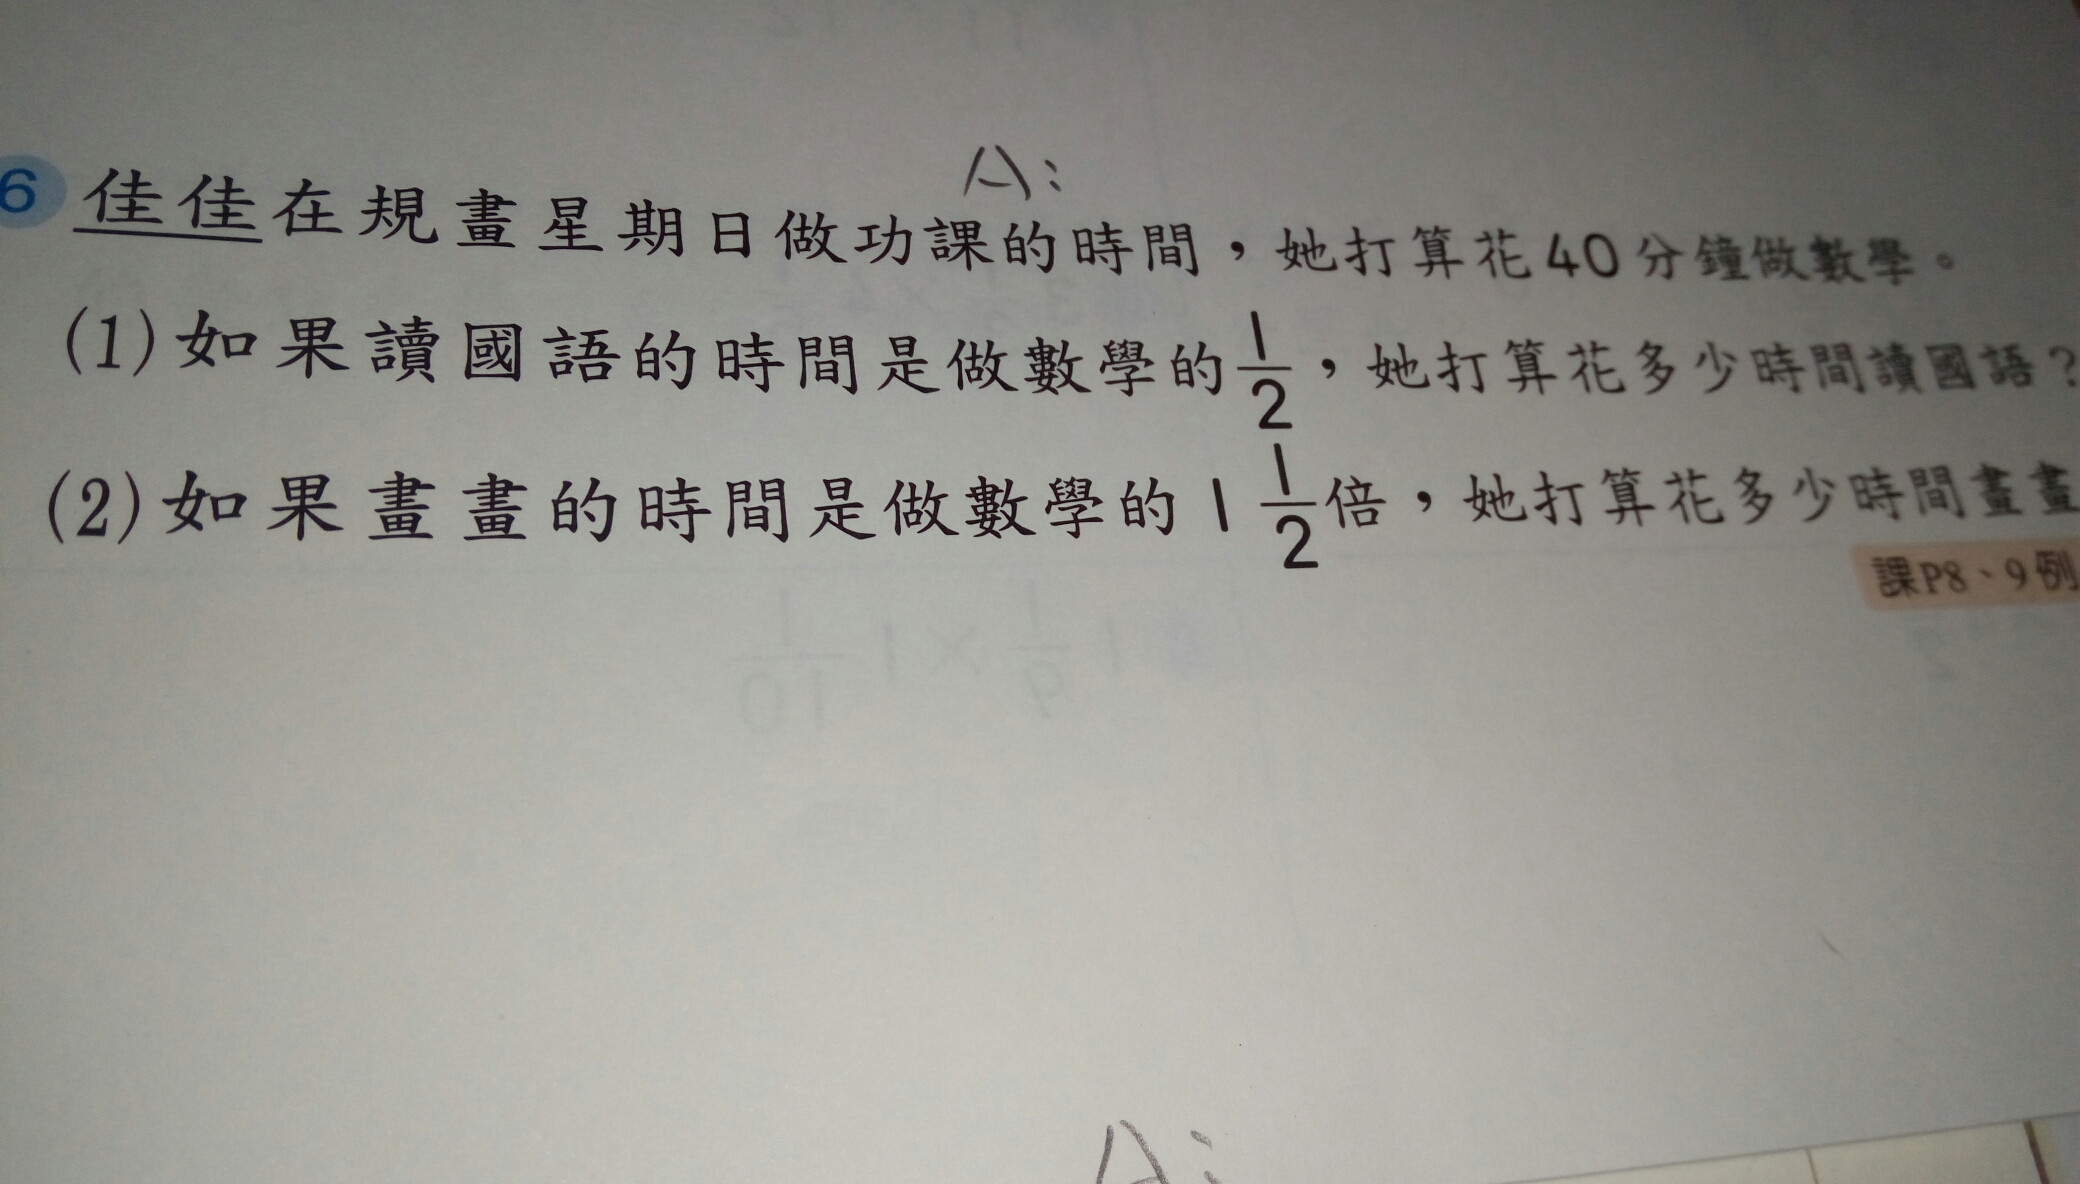 A:
6 佳佳在規畫星期日做功課的時間，她打算花40分鐘做數學。
(1)如果讀國語的時間是做數學的1/2，她打算花多少時間讀國語？
(2)如果畫畫的時間是做數學的1 1/2倍，她打算花多少時間畫畫
課P8、9例
A: